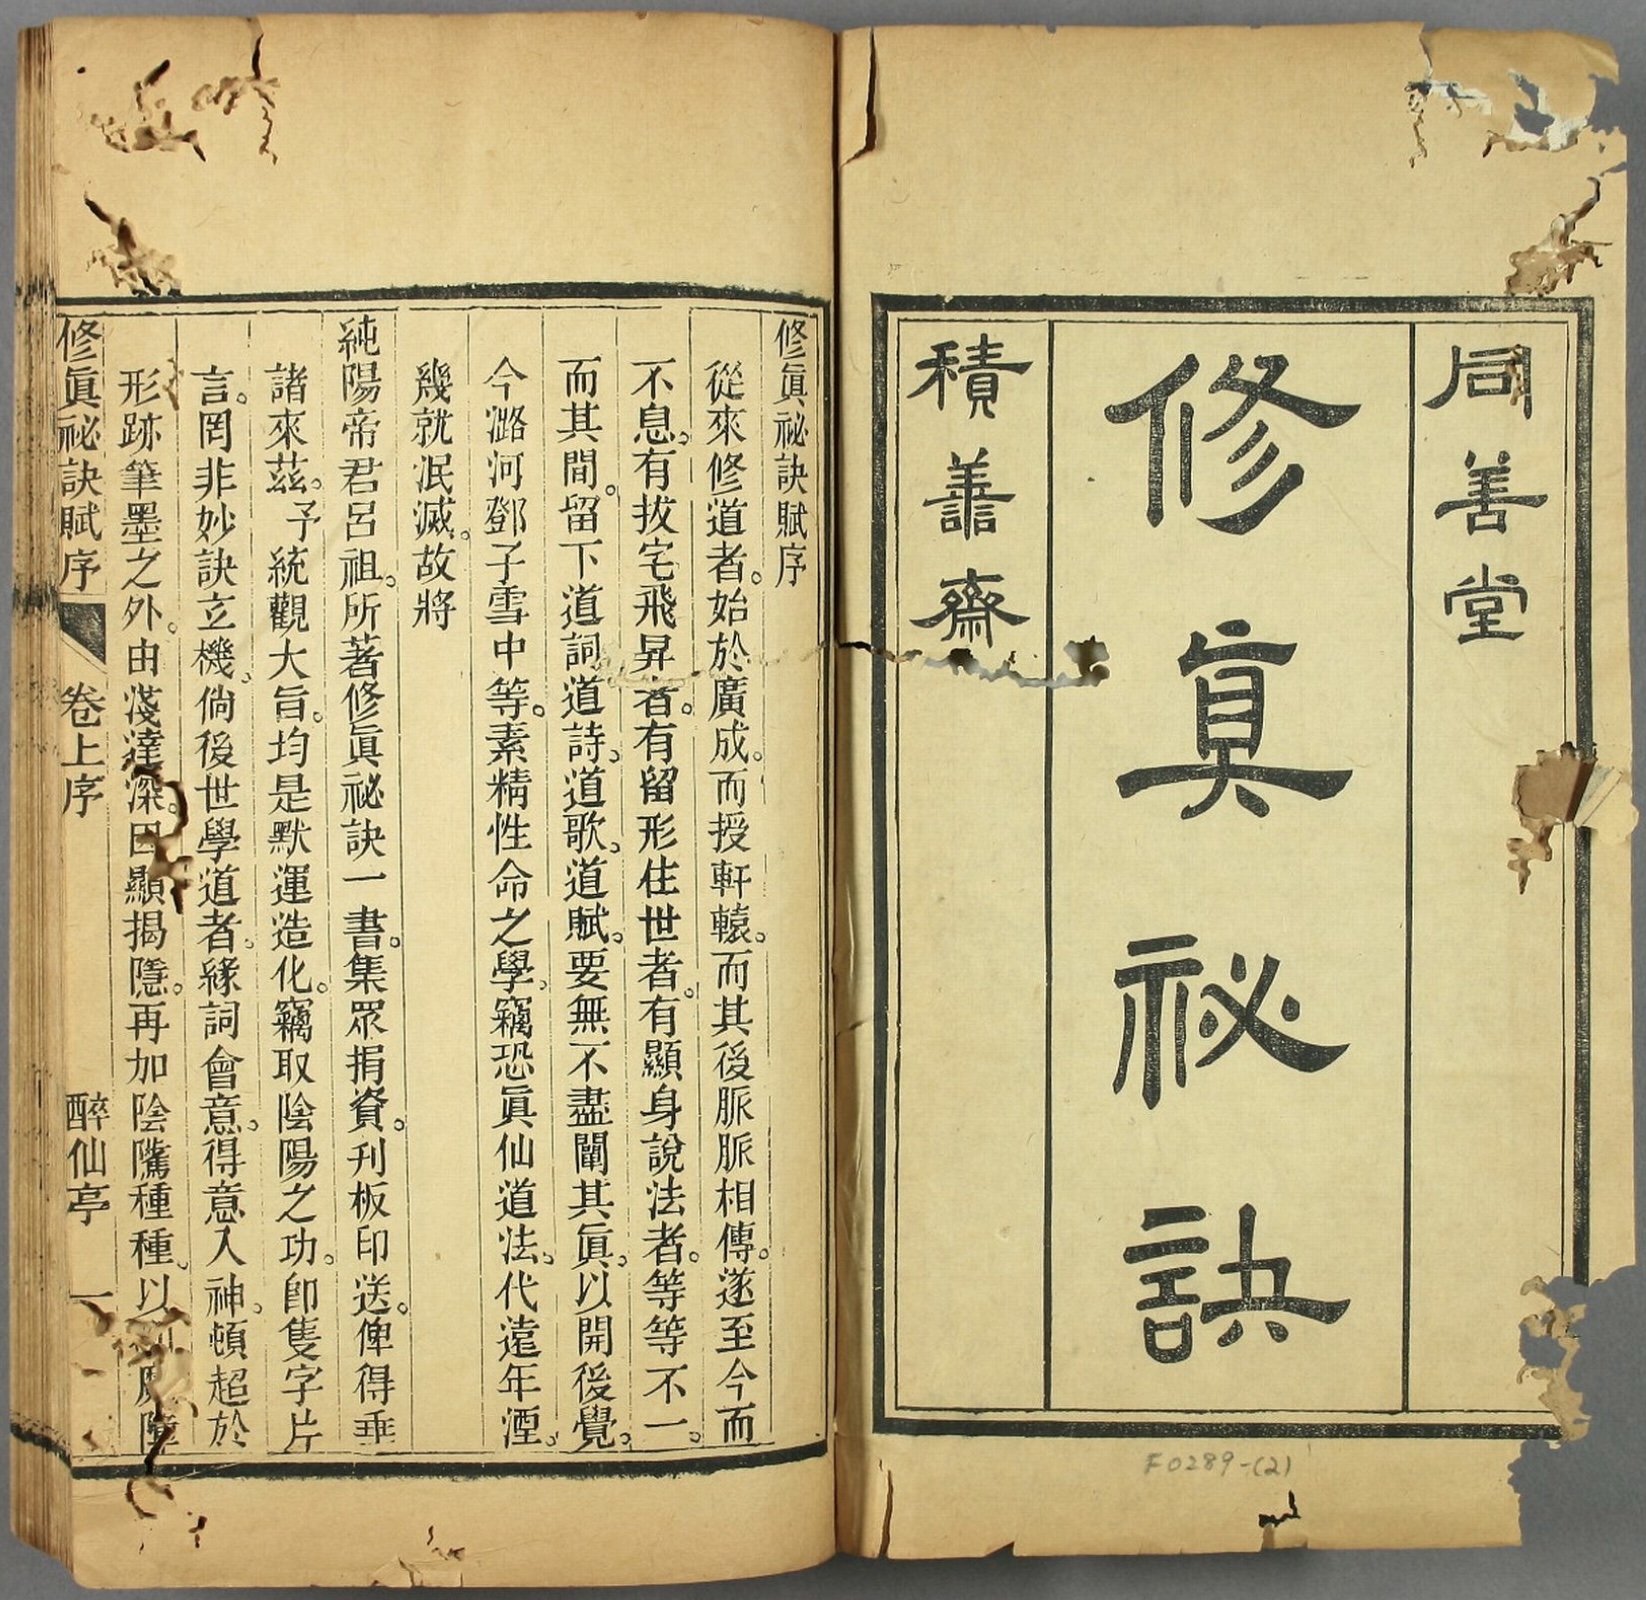 同善堂
修眞祕訣
積善齋
F0289-(2)
修眞祕訣賦序
從來修道者。始於廣成。而授軒轅。而其後脈脈相傳。遂至今而
不息。有拔宅飛昇者。有留形住世者。有顯身說法者。等等不一。
而其間。留下道詞道詩。道歌。道賦。要無不盡闡其眞。以開後覺。
今潞河鄧子雪中等。素精性命之學。竊恐眞仙道法。代遠年湮。
幾就泯滅。故將
純陽帝君呂祖。所著修眞祕訣一書。集眾捐資。刊板印送。俾得垂
諸來茲。予統觀大旨。均是默運造化。竊取陰陽之功。卽隻字片
言。罔非妙訣立機。倘後世學道者。緣詞會意。得意入神。頓超於
形跡筆墨之外。由淺達深。因顯揭隱。再加陰隲種種。以魔障
修眞祕訣賦序 卷上序 醉仙亭 一